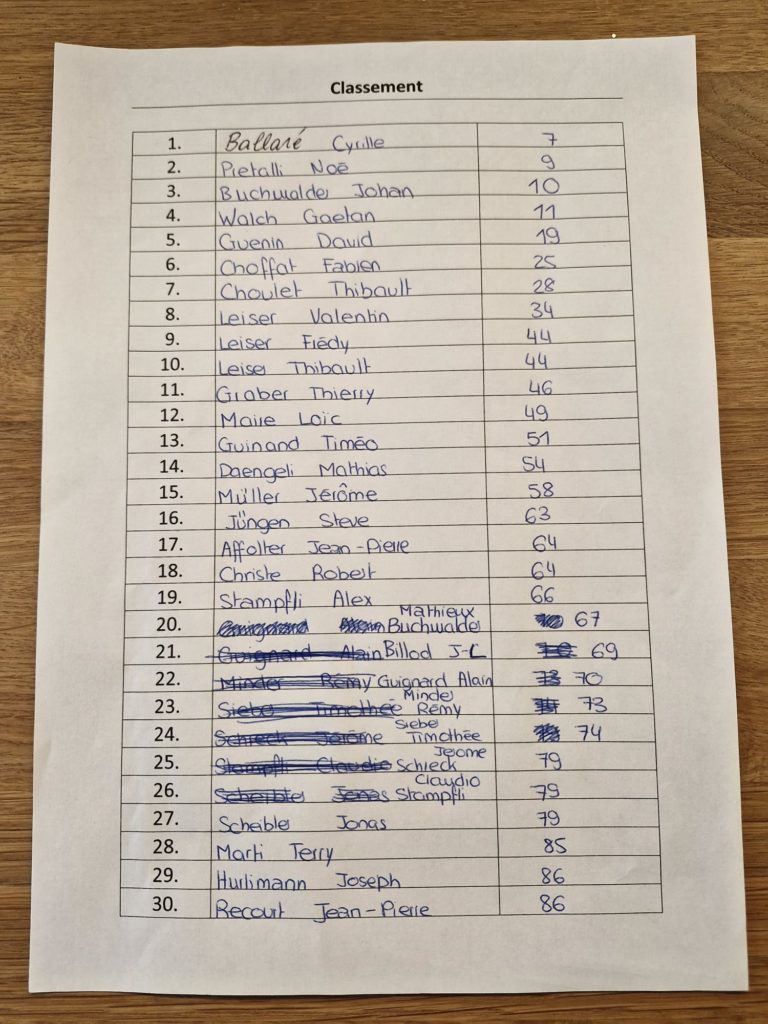 Classement
1. Ballaré Cyrille 7
2. Pietalli Noé 9
3. Buchwalder Johan 10
4. Walch Gaetan 11
5. Guenin David 19
6. Choffat Fabien 25
7. Choulet Thibault 28
8. Leiser Valentin 34
9. Leiser Frédy 44
10. Leiser Thibault 44
11. Graber Thierry 46
12. Maire Loïc 49
13. Guinand Timéo 51
14. Daengeli Mathias 54
15. Müller Jérôme 58
16. Jüngen Steve 63
17. Affolter Jean-Pierre 64
18. Christe Robert 64
19. Stampfli Alex 66
20. Mathieux Buchwalder 67
21. Guignard Alain Billod J-L 69
22. Minder Rémy Guignard Alain 70
23. Siebe Timothée Minder Rémy 73
24. Schreck Jérôme Siebe Timothée 74
25. Stampfli Claudio Jerome Schreck 79
26. Scheibler Jonas Claudio Stampfli 79
27. Scheibler Jonas 79
28. Marti Terry 85
29. Hurlimann Joseph 86
30. Recourt Jean-Pierre 86